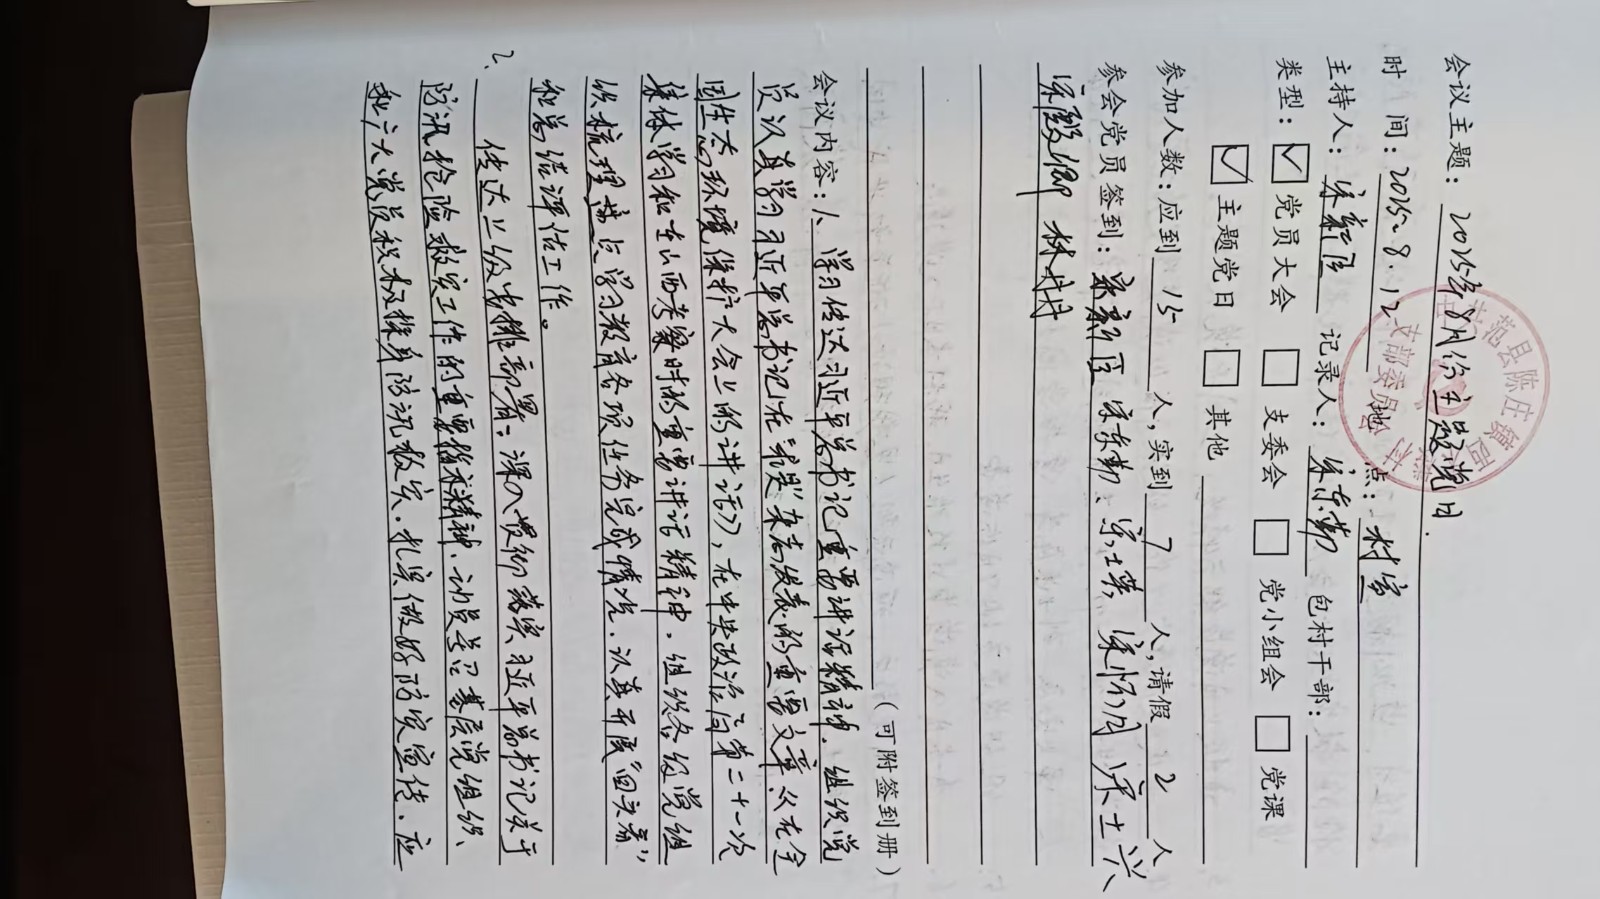 会议主题：2025年8月份主题党日.
时 间：2025.8.12 地 点：村室
主持人： 记录人：宋东勤 包村干部：
类型：☑党员大会 □支委会 □党小组会 □党课
☑主题党日 □其他
参加人数：应到 15 人，实到 7 人，请假 2 人
参会党员签到： 宋东勤、宋士英 宋怀月 宋士兴
宋殿卿
（可附签到册）
会议内容：1、学习传达习近平总书记重要讲话精神．组织党
员认真学习习近平总书记在《求是》杂志发表的重要文章《在全
国生态环境保护大会上的讲话》，在中央政治局第二十一次
集体学习和在山西考察时的重要讲话精神．组织各级党组
织梳理 学习教育各项任务完成情况．认真开展“回头看”，
和总结评估工作。
2、传达上级安排部署：深入贯彻落实习近平总书记关于
防汛抢险救灾工作的重要指示精神．动员 基层党组织、
和广大党员积极投身防汛救灾．扎实做好防灾宣传．应
范县陈庄镇
支部委员会